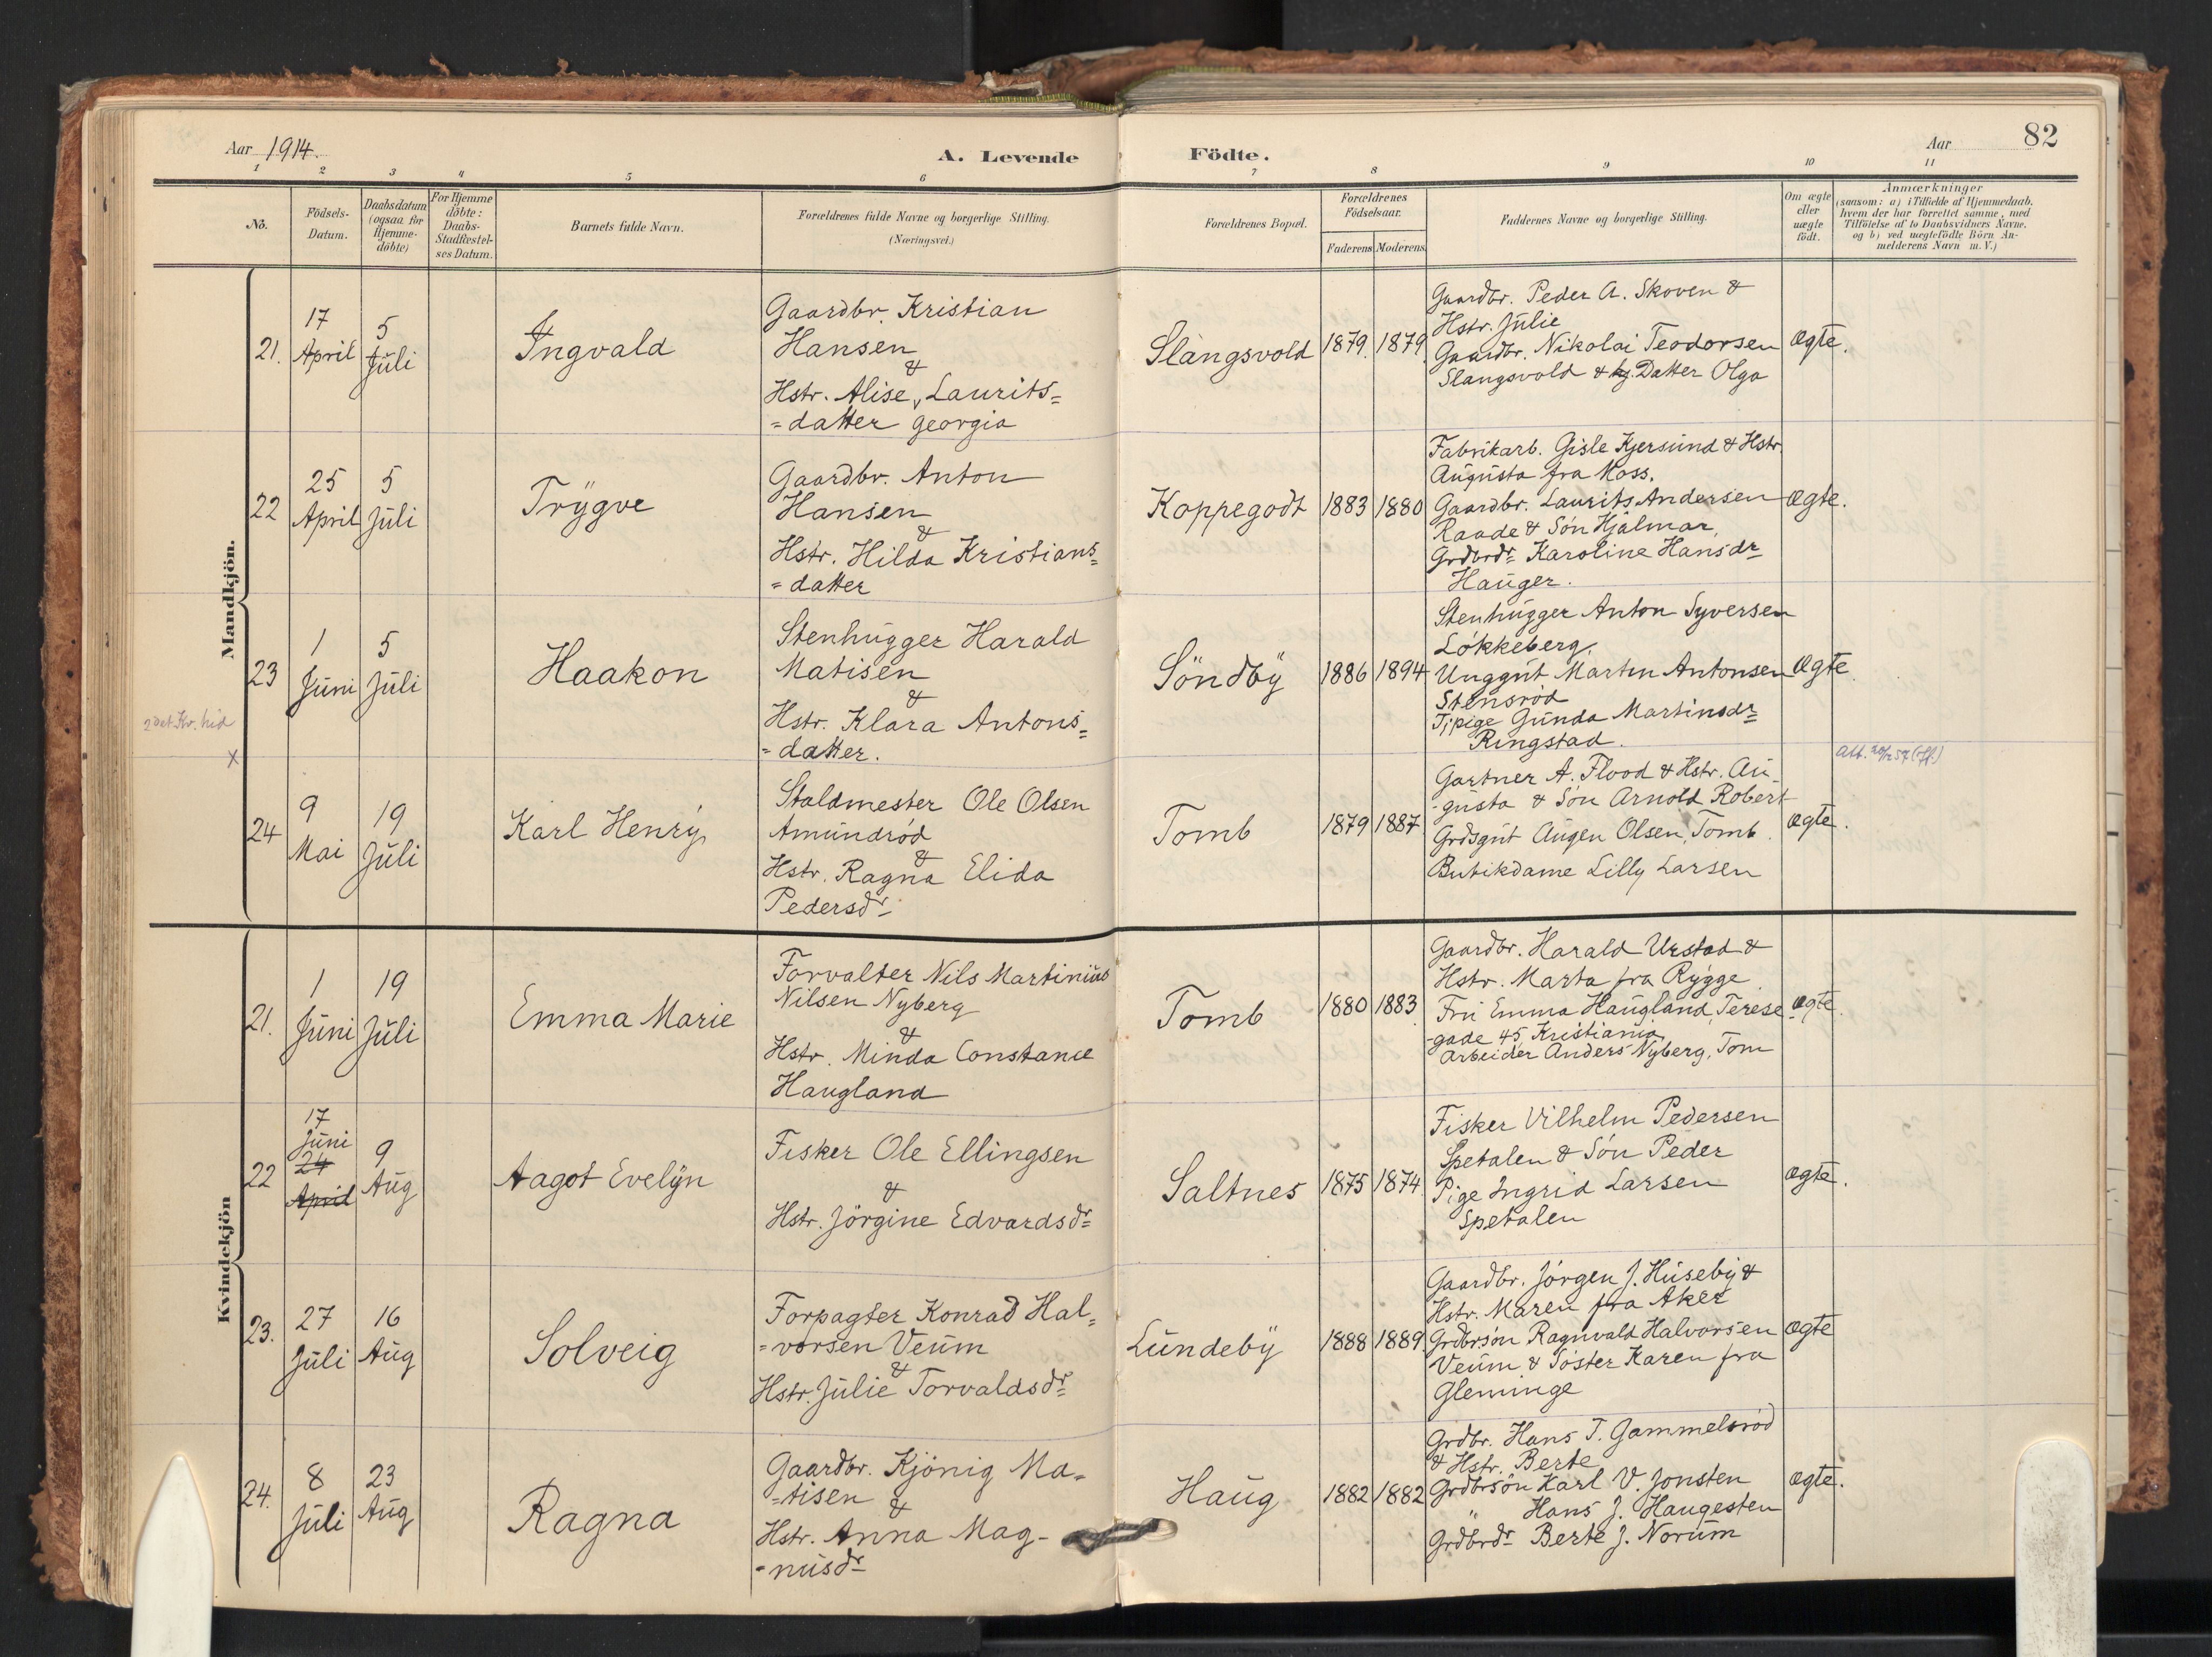 Aar 1914.
A. Levende Födte.
Aar
82
1 2 3 4 5 6 7 8 9 10 11
No.
Födsels-
Datum.
Daabsdatum
(ogsaa for
Hjemme-
döbte)
For Hjemme
döbte:
Daabs-
Stadfæstel-
ses Datum.
Barnets fulde Navn.
Forældrenes fulde Navne og borgerlige Stilling.
(Næringsvei.)
Forældrenes Bopæl.
Forældrenes
Födselsaar.
Faderens Moderens
Faddernes Navne og borgerlige Stilling.
Om ægte
eller
uægte
födt.
Anmærkninger
(saasom: a) i Tilfælde af Hjemmedaab,
hvem der har forrettet samme, med
Tilföielse af to Daabsvidners Navne,
og b) ved uægtefödte Börn An-
melderens Navn m.V.)
Mandkjön.
21.
17
April
5
Juli
Ingvald
Gaardbr. Kristian
Hansen
&
Hstr. Alise, Laurits=
=datter Georgia
Slangsvold
1879. 1879
Gaardbr. Peder A. Skoven &
Hstr. Julie
Gaardbr. Nikolai Teodorsen
Slangsvold & Datter Olga
Ægte.
22
25
April
5
Juli
Trygve
Gaardbr. Anton
Hansen
&
Hstr. Hilda Kristians=
=datter
Koppegodt
1883 1880
Fabrikarb. Gisle Kjersund & Hstr.
Augusta fra Moss.
Gaardbr. Laurits Andersen
Raade & Sön Hjalmar,
Grdbrdr Karoline Hansdr
Hauger.
Ægte.
23
1
Juni
5
Juli
Haakon
Stenhugger Harald
Matisen
&
Hstr. Klara Antons=
=datter.
Söndby
1886 1894
Stenhugger Anton Syversen
Lökkeberg.
Unggut Martin Antonsen
Stensröd
Tjpige Gunda Martinsdr
Ringstad.
Ægte.
2det Kv. hid
x
24
9
Mai
19
Juli
Karl Henry
Staldmester Ole Olsen
Amundröd
&
Hstr. Ragna Elida
Pedersdr
Tomb
1879 1887
Gartner A. Flood & Hstr. Au-
-gusta & Sön Arnold Robert
Grdsgut Augen Olsen, Tomb.
Butikdame Lilly Larsen
Ægte.
Kvindekjön
21.
1
Juni
19
Juli
Emma Marie
Forvalter Nils Martinius
Nilsen Nyberg
&
Hstr. Minda Constance
Haugland
Tomb
1880 1883
Gaardbr. Harald Urstad &
Hstr. Marta fra Rygge
Fru Emma Haugland, Terese
-gade 45, Kristiania,
Arbeider Anders Nyberg, Tom
Ægte.
22
17
Juni
24
April
9
Aug
Aagot Evelyn
Fisker Ole Ellingsen
&
Hstr. Jörgine Edvardsdr
Saltnes
1875 1874
Fisker Vilhelm Pedersen
Spetalen & Sön Peder
Pige Ingrid Larsen
Spetalen
Ægte.
23.
27
Juli
16
Aug
Solveig
Forpagter Konrad Hal=
=vorsen Veum
&
Hstr. Julie Torvaldsdr
Lundeby
1888 1889
Gaardbr. Jörgen J. Huseby &
Hstr. Maren fra Aker
Grdbrsön Ragnvald Halvorsen
Veum & Söster Karen fra
Gleminge
Ægte
24.
8
Juli
23
Aug
Ragna
Gaardbr. Kjönig Ma=
=tisen
&
Hstr. Anna Mag-
-nusdr
Haug
1882 1882
Grdbr. Hans T. Gammelsröd
& Hstr. Berte
Grdbrsön Karl V. Jonsten
" Hans J. Haugesten
Grdbrdr Berte J. Norum
Ægte.